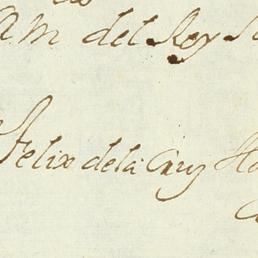 A.M. del Rey
Felix dela Cruz